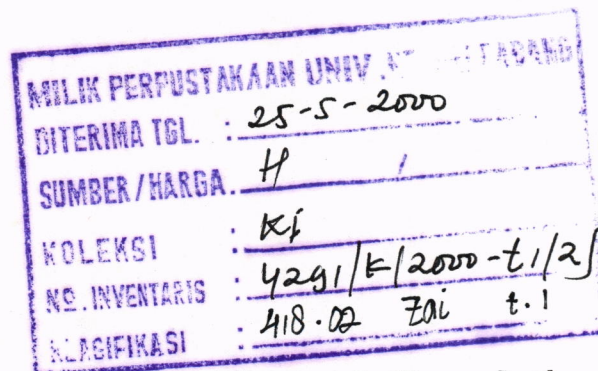 MILIK PERPUSTAKAAN UNIV. PADANG
DITERIMA TGL. : 25-5-2000
SUMBER/HARGA. H /
KOLEKSI : KI
NO. INVENTARIS : 4291/K/2000-t1/2
KLASIFIKASI : 418.02 Zai t.1